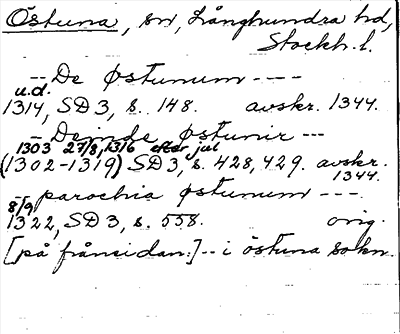 Östuna, sn, Långhundra hd,
Stockh. l.
-- De Østunum ----
u.d.
1314, SD 3, s. 148. avskr. 1344.
-- Deinde Østunir ---
1303 27/8, 13/6 efter jul
(1302-1319) SD 3, s. 428, 429. avskr.
1344.
-- parochia Østunum ---.
8/9
1322, SD 3, s. 558. orig.
[på frånsidan:] -- i östuna sokn.